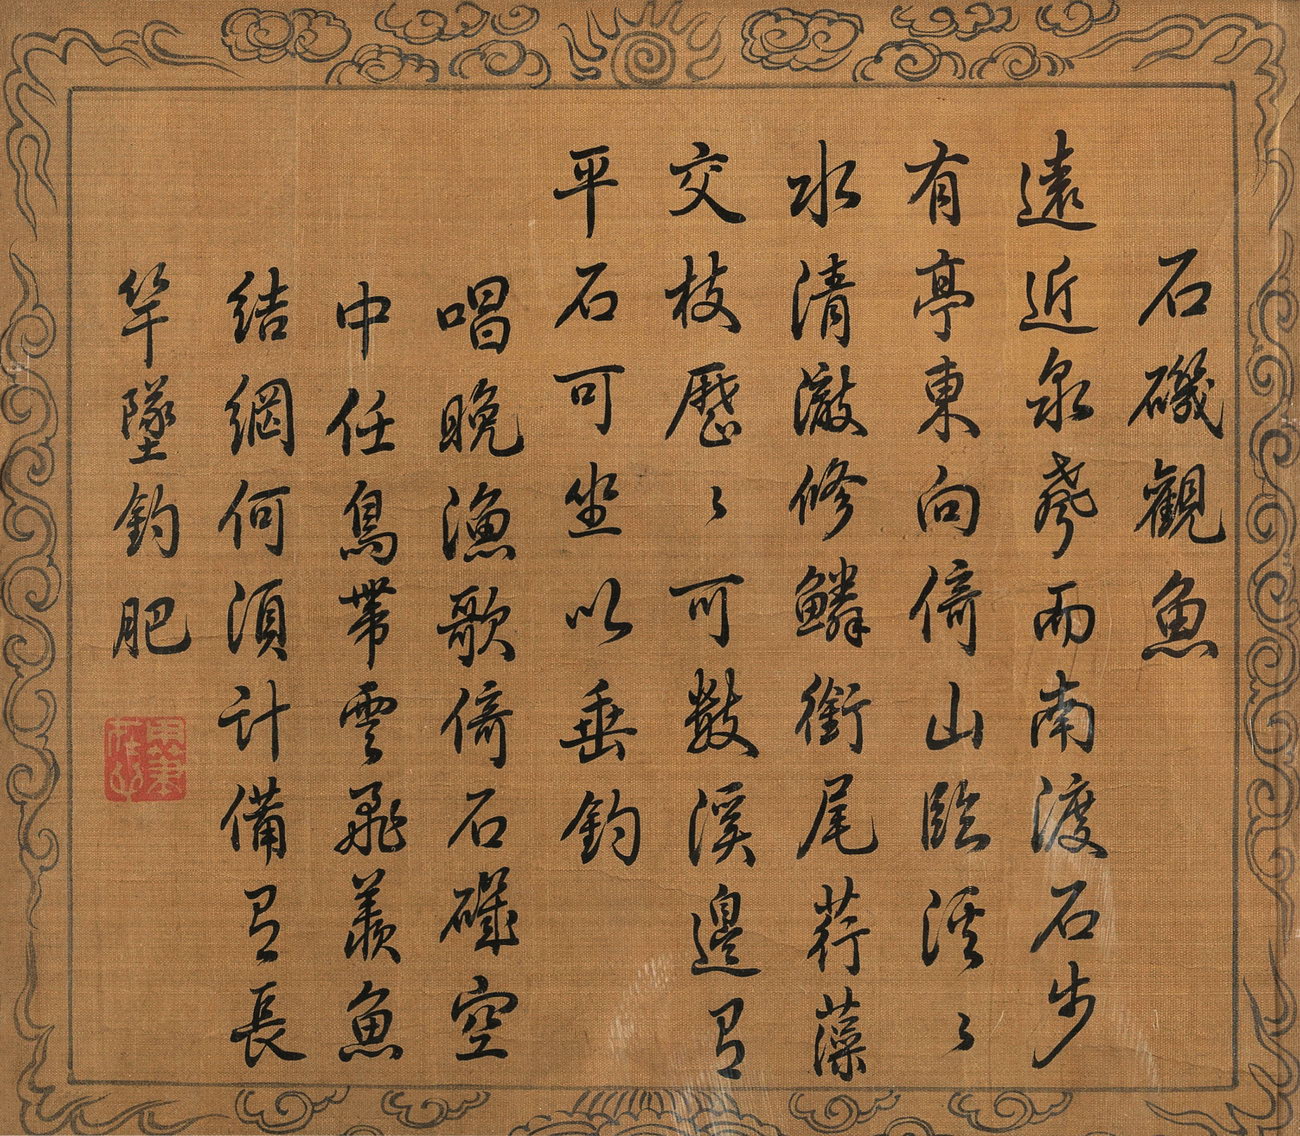 石磯觀魚
遠近泉聲而南渡石步
有亭東向倚山臨溪〻
水清澈修鱗銜尾荇藻
交枝歷〻可數溪邊有
平石可坐以垂釣
唱晚漁歌倚石磯空
中任鳥帶雲飛羨魚
結網何須計備有長
竿墜釣肥